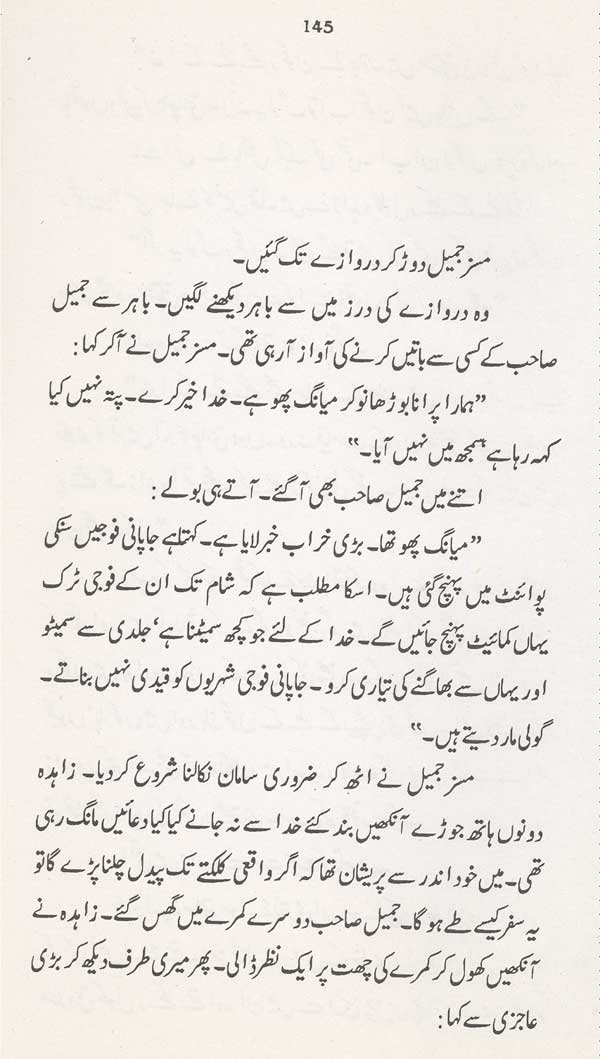 145
مسز جمیل دوڑ کر دروازے تک گئیں۔
وہ دروازے کی درز میں سے باہر دیکھنے لگیں۔ باہر سے جمیل
صاحب کے کسی سے باتیں کرنے کی آواز آ رہی تھی۔ مسز جمیل نے آ کر کہا:
”ہمارا پرانا بوڑھا نوکر میانگ پھو ہے۔ خدا خیر کرے۔ پتہ نہیں کیا
کہہ رہا ہے سمجھ میں نہیں آیا۔“
اتنے میں جمیل صاحب بھی آ گئے۔ آتے ہی بولے:
”میانگ پھو تھا۔ بڑی خراب خبر لایا ہے۔ کہتا ہے جاپانی فوجیں سنکی
پوائنٹ میں پہنچ گئی ہیں۔ اسکا مطلب ہے کہ شام تک ان کے فوجی ٹرک
یہاں کمائیٹ پہنچ جائیں گے۔ خدا کے لئے جو کچھ سمیٹنا ہے‘ جلدی سے سمیٹو
اور یہاں سے بھاگنے کی تیاری کرو۔ جاپانی فوجی شہریوں کو قیدی نہیں بناتے۔
گولی مار دیتے ہیں۔“
مسز جمیل نے اٹھ کر ضروری سامان نکالنا شروع کر دیا۔ زاہدہ
دونوں ہاتھ جوڑے آنکھیں بند کئے خدا سے نہ جانے کیا کیا دعائیں مانگ رہی
تھی۔ میں خود اندر سے پریشان تھا کہ اگر واقعی کلکتے تک پیدل چلنا پڑے گا تو
یہ سفر کیسے طے ہو گا۔ جمیل صاحب دوسرے کمرے میں گھس گئے۔ زاہدہ نے
آنکھیں کھول کر کمرے کی چھت پر ایک نظر ڈالی۔ پھر میری طرف دیکھ کر بڑی
عاجزی سے کہا: